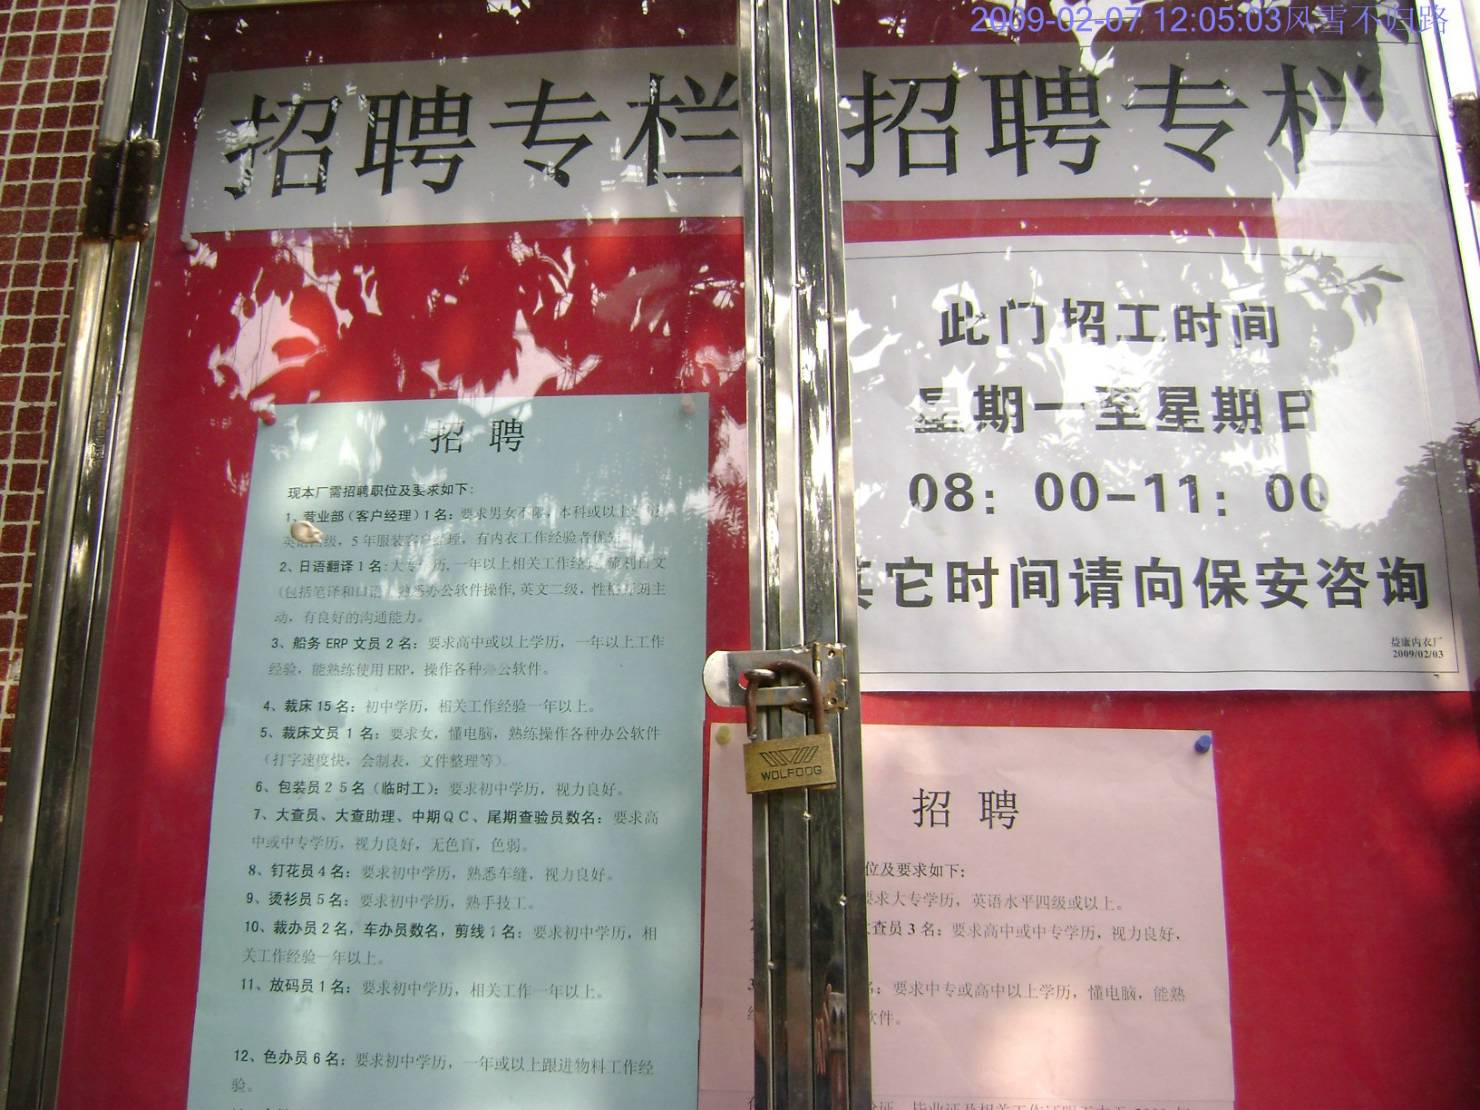 2009-02-07 12:05:03风雪不归路
招聘专栏
招聘专栏
此门招工时间
星期一至星期日
08：00-11：00
其它时间请向保安咨询
益康内衣厂
2009/02/03
招 聘
现本厂需招聘职位及要求如下：
1、营业部（客户经理）1名：要求男女不限，本科或以上
英语四级，5年服装客户经理，有内衣工作经验者优先
2、日语翻译1名:大专学历,一年以上相关工作经
（包括笔译和口语），熟悉办公软件操作,英文二级，性格开朗主
动，有良好的沟通能力。
3、船务ERP文员2名：要求高中或以上学历，一年以上工作
经验，能熟练使用ERP，操作各种办公软件。
4、裁床15名：初中学历，相关工作经验一年以上。
5、裁床文员1名：要求女，懂电脑，熟练操作各种办公软件
（打字速度快，会制表，文件整理等）
6、包装员25名（临时工）：要求初中学历，视力良好。
7、大查员、大查助理、中期QC、尾期查验员数名：要求高
中或中专学历，视力良好，无色盲，色弱。
8、钉花员4名：要求初中学历，熟悉车缝，视力良好。
9、烫衫员5名：要求初中学历，熟手技工。
10、裁办员2名，车办员数名，剪线1名：要求初中学历，相
关工作经验一年以上。
11、放码员1名：要求初中学历，相关工作一年以上。
12、色办员6名：要求初中学历，一年或以上跟进物料工作经
验。
招 聘
位及要求如下：
要求大专学历，英语水平四级或以上。
查员3名：要求高中或中专学历，视力良好，
名：要求中专或高中以上学历，懂电脑，能熟
软件。